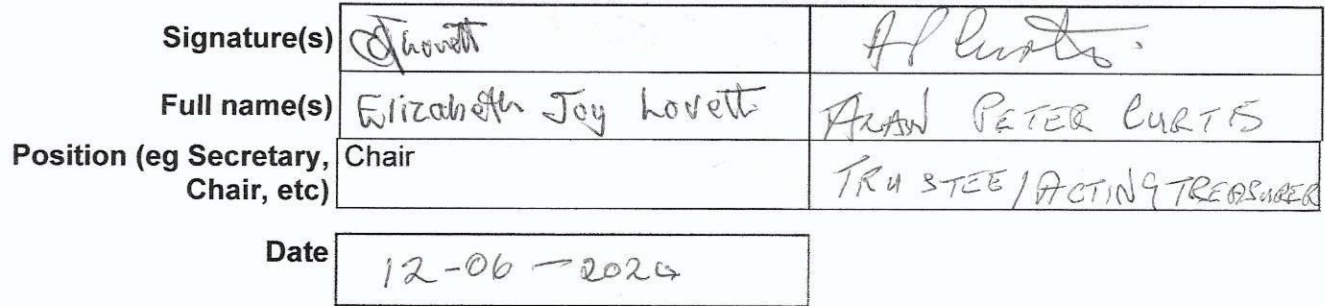 Signature(s) EJLovett APCurtis.
Full name(s) Elizabeth Joy Lovett ALAN PETER CURTIS
Position (eg Secretary, Chair TRUSTEE/ACTING TREASURER
Chair, etc)
Date 12-06-2024